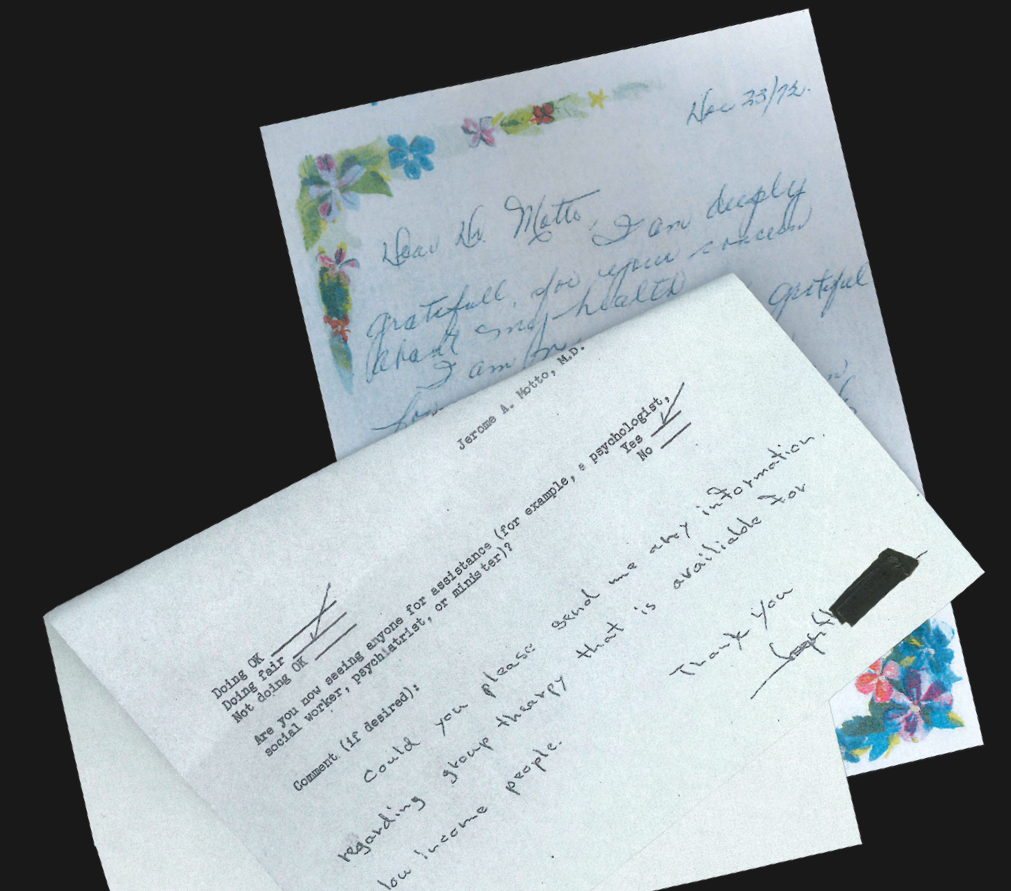 Dec 23/72.
Dear Dr. Motto, I am deeply
gratefull, for your concern
about my health
I am
grateful
Jerome A. Motto, M.D.
Doing OK
Doing fair
Not doing OK
Are you now seeing anyone for assistance (for example, a psychologist,
social worker, psychiatrist, or minister)?
Yes
No
Comment (if desired):
Could you please send me any information
regarding group therapy that is availiable for
low income people.
Thank You